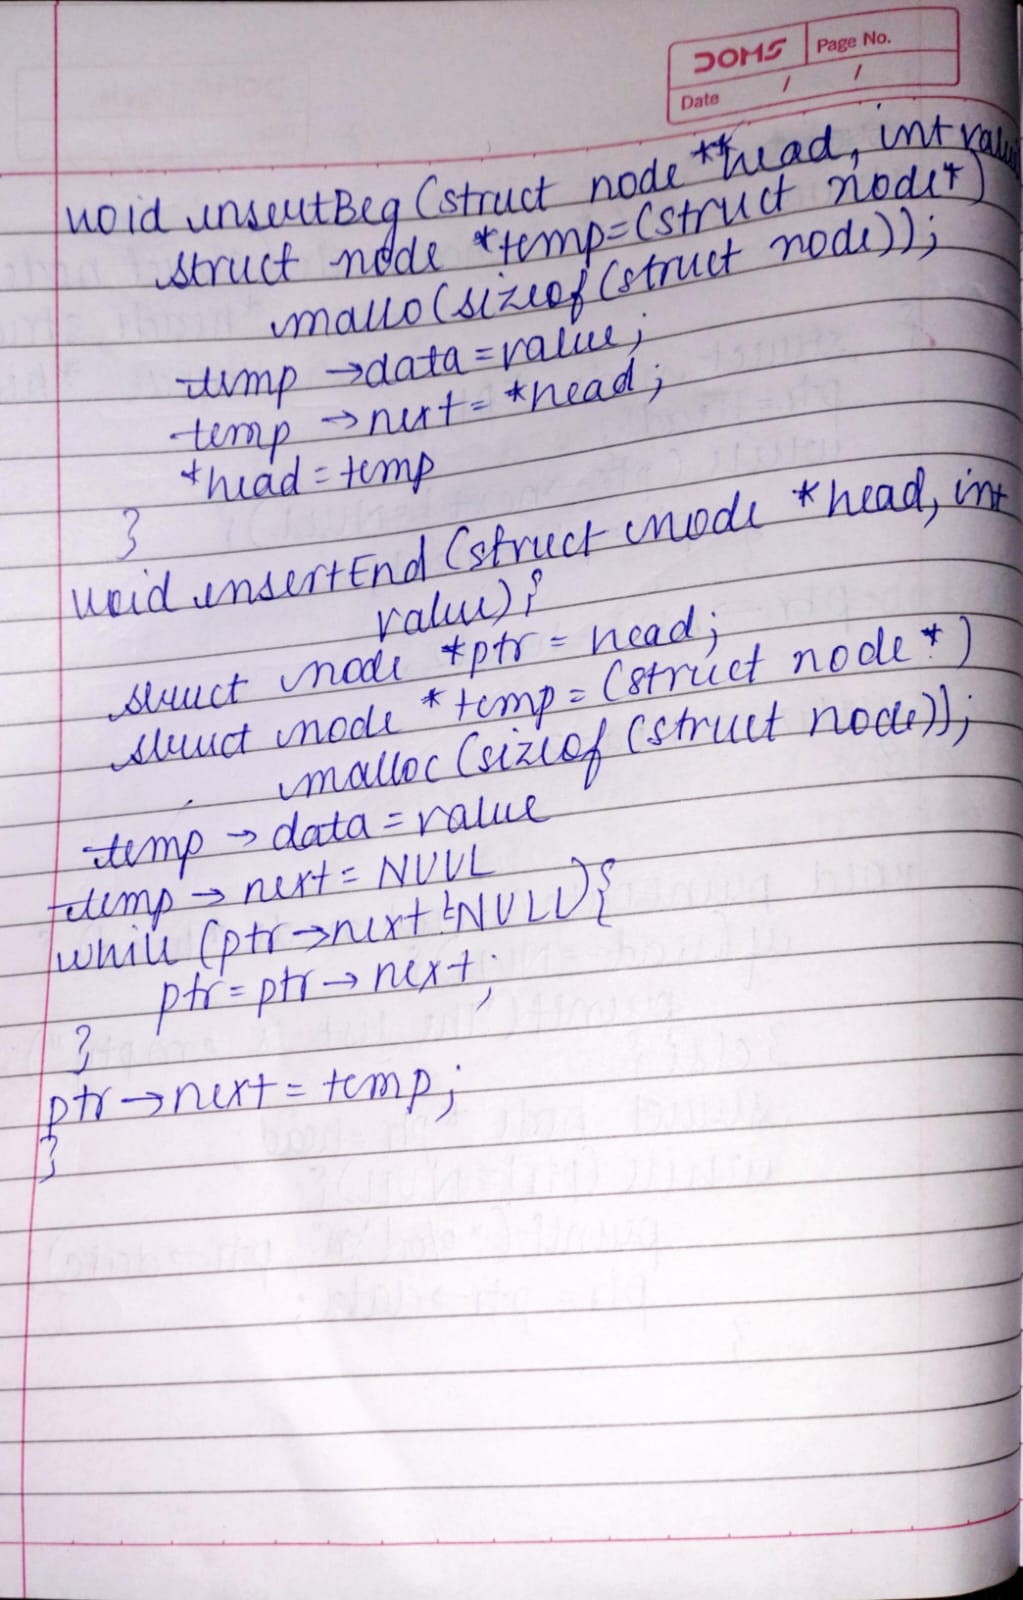 DOMS
Page No.
Date / /
void insertBeg (struct node **head, int value
struct node *temp=(struct node*)
mallo(sizeof(struct node));
temp →data=value;
temp →next= *head;
*head = temp
}
void insertEnd (struct node *head, int
value){
struct node *ptr = head;
struct node *temp = (struct node*)
malloc (sizeof (struct node));
temp → data = value
temp → next = NULL
while (ptr→next != NULL){
ptr = ptr → next;
}
ptr → next = temp;
}